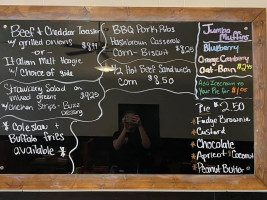 Beef & Cheddar Toaster
w/ grilled onions $8.99
- or -
Italian Melt Hoagie
w/ choice of side
Strawberry Salad on
mixed greens $9.25
w/ Chicken Strips - Buzz
Dressing
* Coleslaw &
Buffalo fries
available *
BBQ Pork Ribs
Hashbrown Casserole
Corn - Biscuit
1/2 Hot Beef Sandwich
Corn $8.50
Jumbo
Muffins
Blueberry
Orange Cranberry
Oat-Bran
Add Icecream to
Your Pie for
Pie $2.50
* Fudge Brownie
* Custard
* Chocolate
* Apricot & Coconut
* Peanut Butter